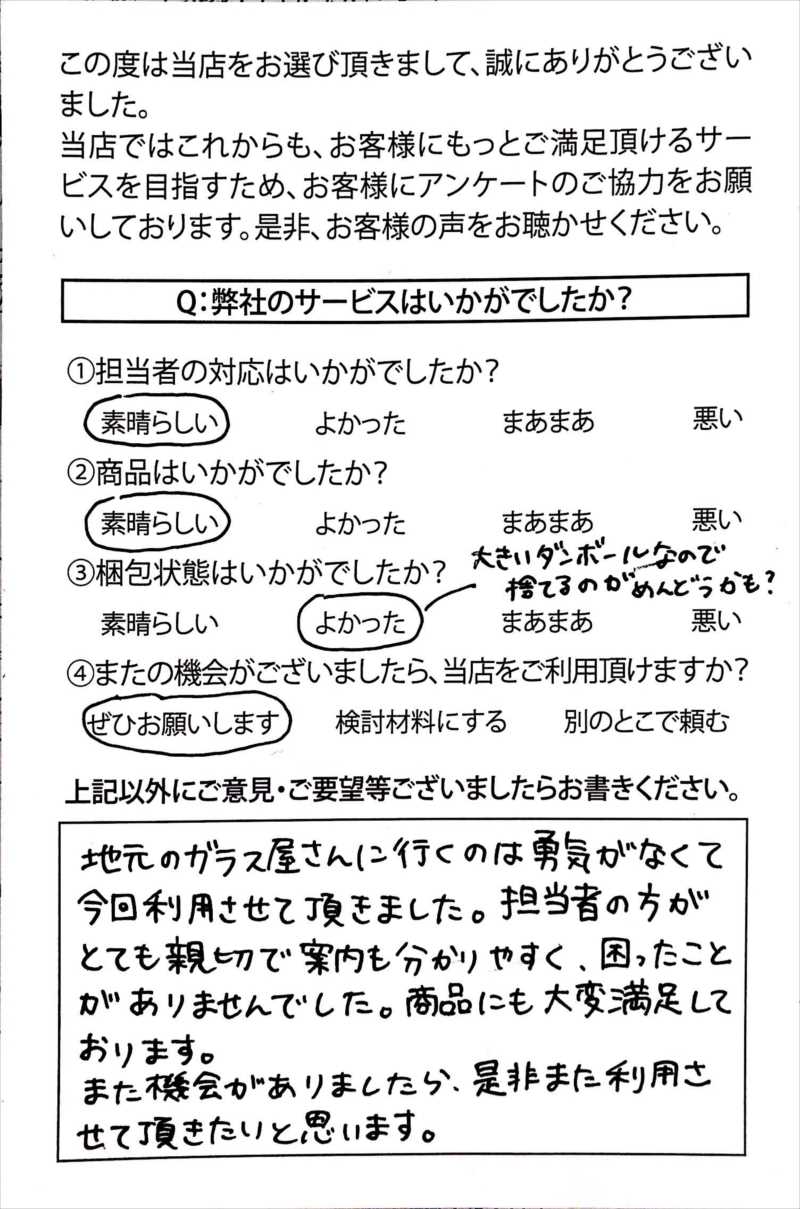 この度は当店をお選び頂きまして、誠にありがとうござい
ました。
当店ではこれからも、お客様にもっとご満足頂けるサー
ビスを目指すため、お客様にアンケートのご協力をお願
いしております。是非、お客様の声をお聴かせください。
Q:弊社のサービスはいかがでしたか?
①担当者の対応はいかがでしたか?
素晴らしい よかった まあまあ 悪い
②商品はいかがでしたか?
素晴らしい よかった まあまあ 悪い
③梱包状態はいかがでしたか?
大きいダンボールなので
捨てるのがめんどうかも?
素晴らしい よかった まあまあ 悪い
④またの機会がございましたら、当店をご利用頂けますか?
ぜひお願いします 検討材料にする 別のとこで頼む
上記以外にご意見・ご要望等ございましたらお書きください。
地元のガラス屋さんに行くのは勇気がなくて
今回利用させて頂きました。担当者の方が
とても親切で案内も分かりやすく、困ったこと
がありませんでした。商品にも大変満足して
おります。
また機会がありましたら、是非また利用さ
せて頂きたいと思います。